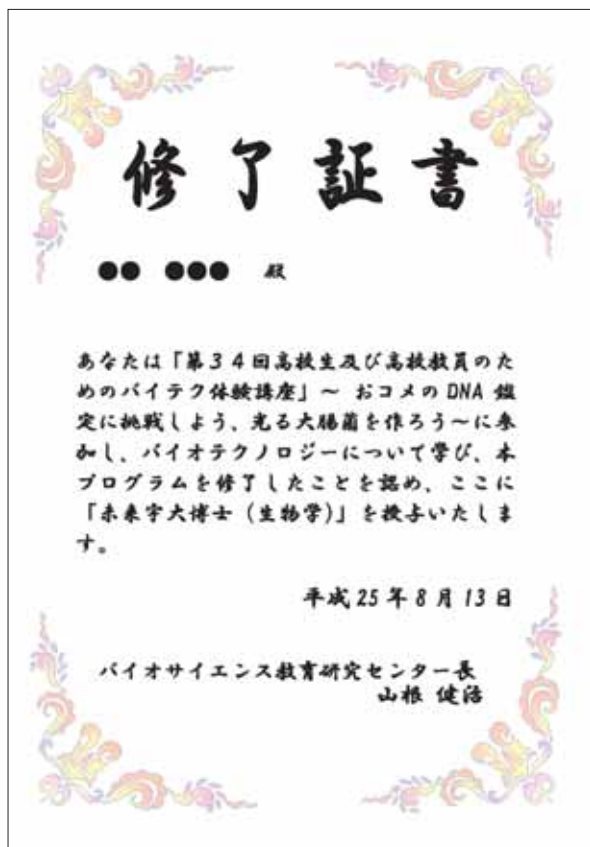 修了証書
●● ●●● 殿
あなたは「第34回高校生及び高校教員のた
めのバイテク体験講座」～ おコメのDNA 鑑
定に挑戦しよう、光る大腸菌を作ろう～に参
加し、バイオテクノロジーについて学び、本
プログラムを修了したことを認め、ここに
「未来宇大博士（生物学）」を授与いたしま
す。
平成25年8月13日
バイオサイエンス教育研究センター長
山根 健治